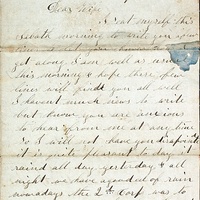 Dear Wife
I seat myself this
sabath morning to write you a few
lines
get along I am well as usual
this morning & hope these few
lines will find you all well
I havent much news to write
but know you are anxious
to hear from me at any time
So I will not have you disapointed
it is quite pleasant to day it
rained all day yesterday & all
night we have a good eal of rain
nowadays the 2nd Corp was to